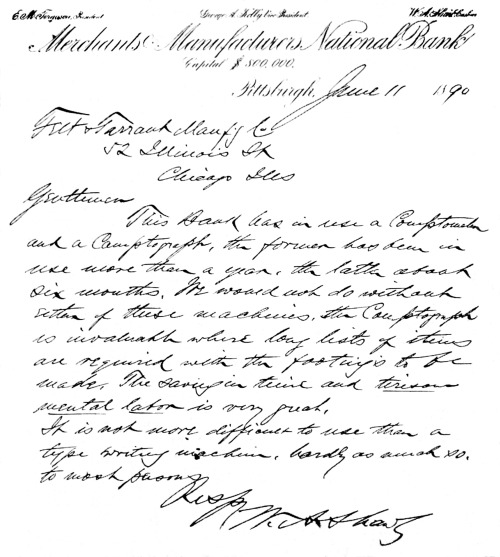 E. M. Ferguson, President
George A. Kelly, Vice President
W. A. Shaw, Cashier
Merchants & Manufacturers National Bank
Capital $800,000.
Pittsburgh, June 11 1890
Felt & Tarrant Manfg Co
52 Illinois St
Chicago Ills
Gentlemen
This Bank has in use a Comptometer
and a Comptograph, the former has been in
use more than a year, the latter about
six months. We would not do without
either of these machines, the Comptograph
is invaluable where long lists of items
are required with the footings to be
made. The saving in time and tiresome
mental labor is very great.
It is not more difficult to use than a
type writing machine, hardly as much so.
to most persons
Resp
W. A. Shaw